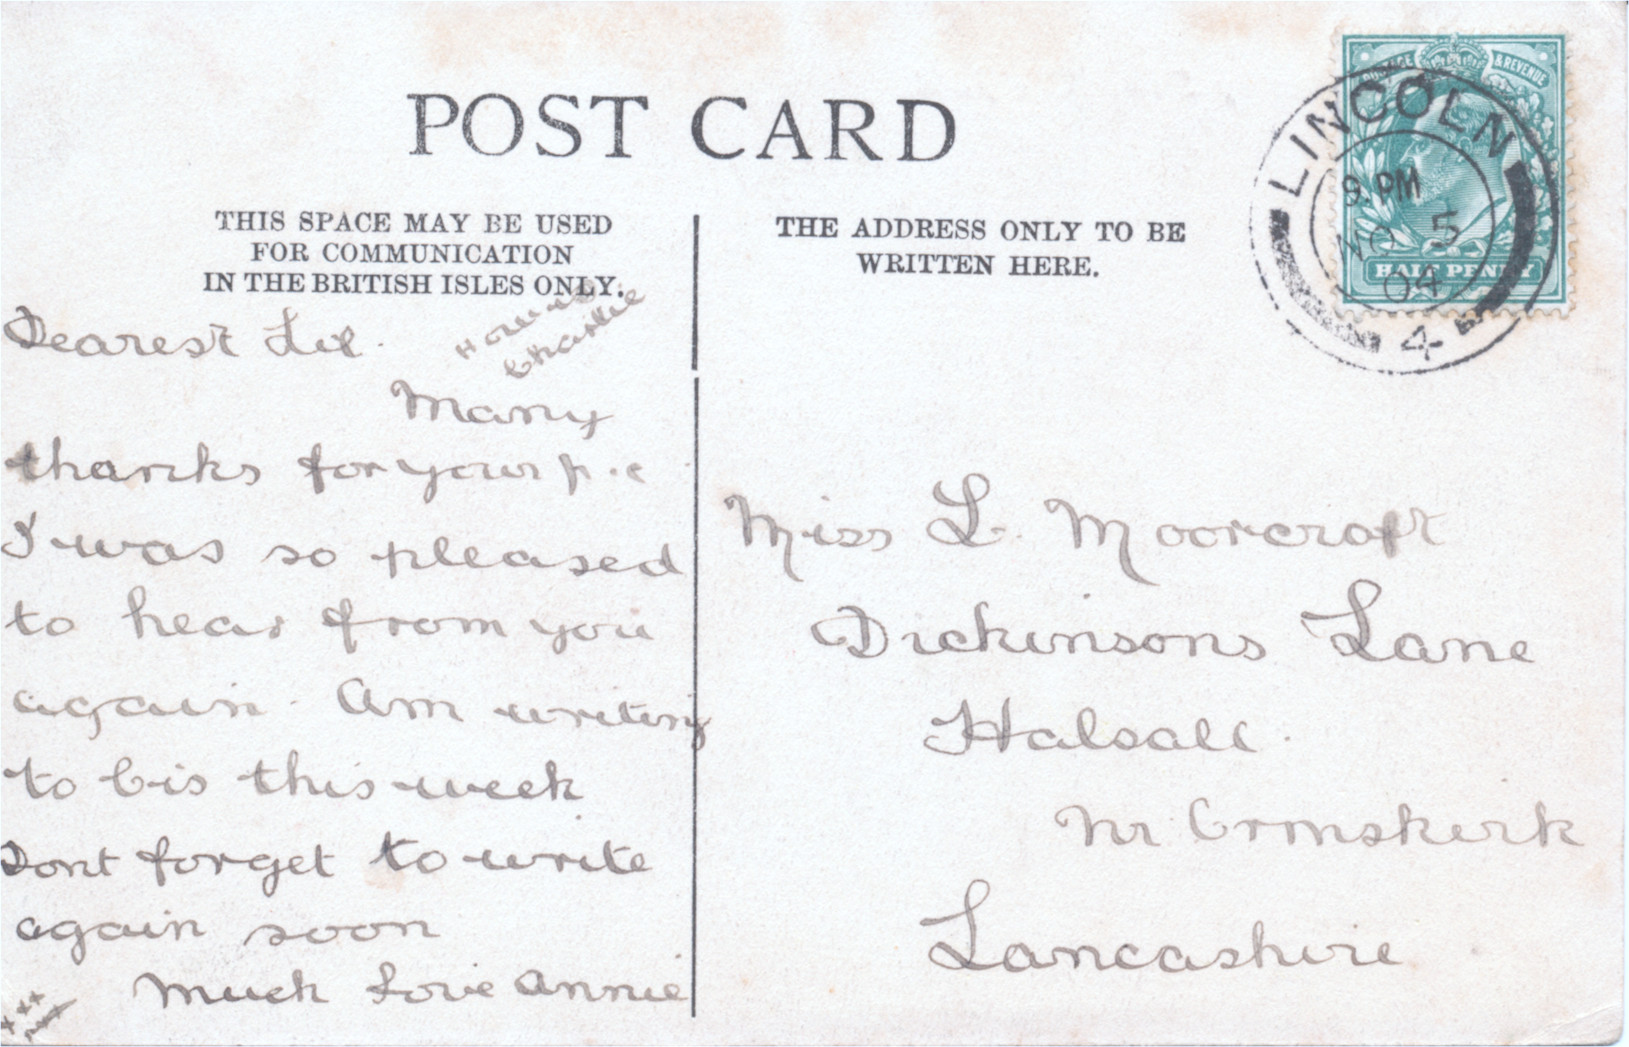 POST CARD
THIS SPACE MAY BE USED
FOR COMMUNICATION
IN THE BRITISH ISLES ONLY.
THE ADDRESS ONLY TO BE
WRITTEN HERE.
POSTAGE & REVENUE
HALF PENNY
LINCOLN
9. PM
NO 5
04
4
Dearest Lil.
Charlie
Many
thanks for your p.c
I was so pleased
to hear from you
again. Am writing
to Cis this week
Dont forget to write
again soon
Much Love Annie
xxx
Miss L. Moorcroft
Dickinsons Lane
Halsall.
Nr. Ormskirk
Lancashire